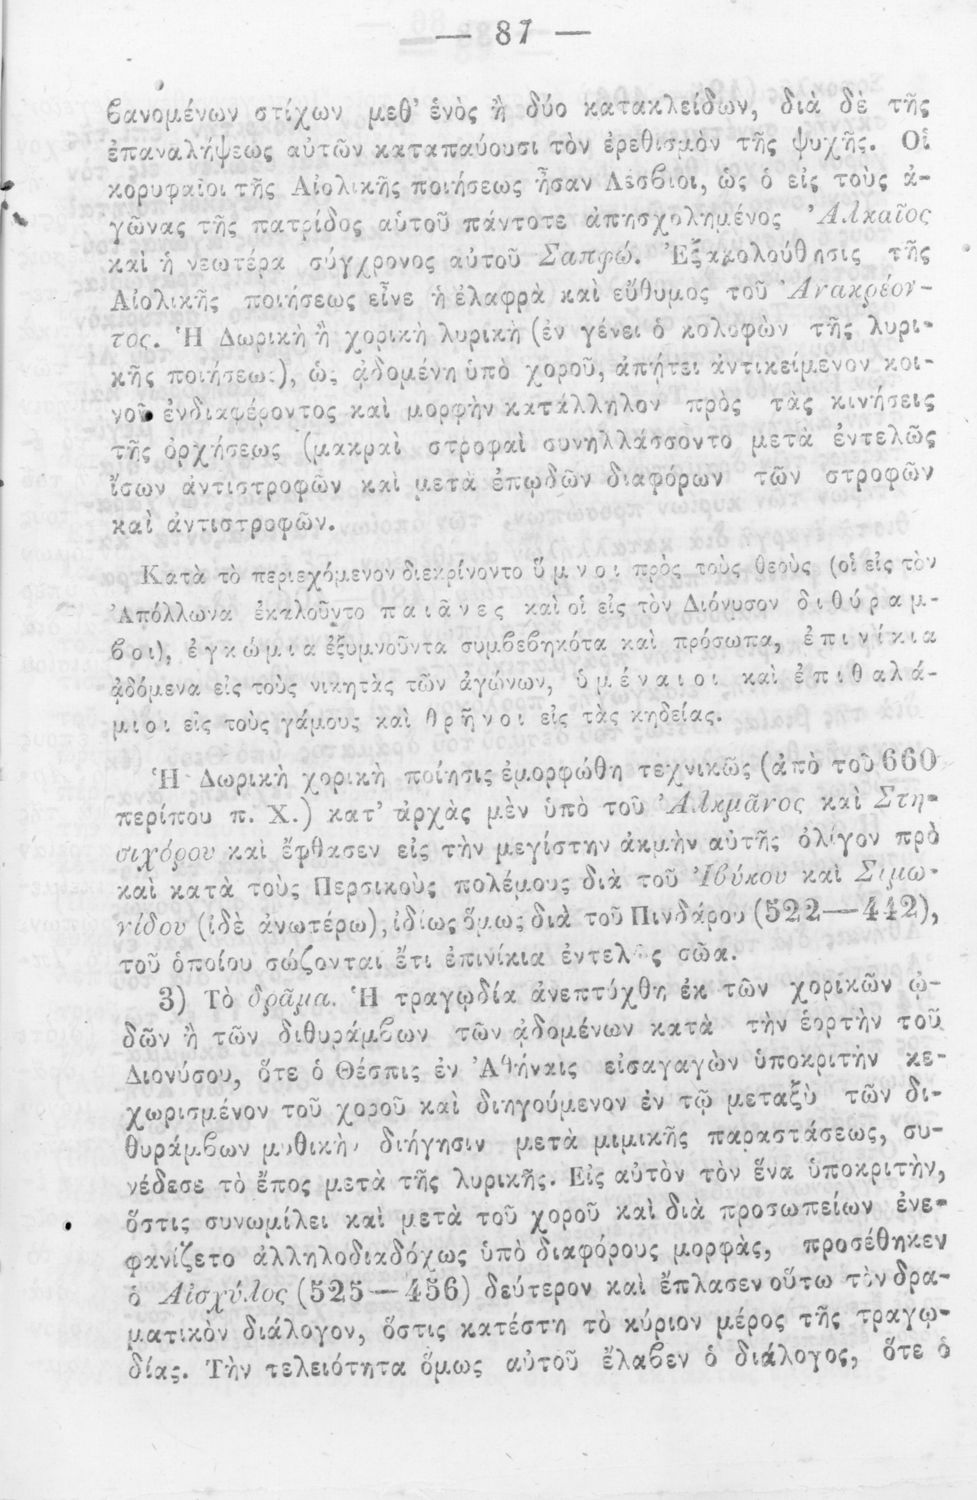 — 87 —
βανομένων στίχων μεθ' ἑνὸς ἢ δύο κατακλείδων, διὰ δὲ τῆς
ἐπαναλήψεως αὐτῶν καταπαύουσι τὸν ἐρεθισμὸν τῆς ψυχῆς. Οἱ
κορυφαῖοι τῆς Αἰολικῆς ποιήσεως ἦσαν Λέσβιοι, ὡς ὁ εἰς τοὺς ἀ-
γῶνας τῆς πατρίδος αὑτοῦ πάντοτε ἀπησχολημένος Ἀλκαῖος
καὶ ἡ νεωτέρα σύγχρονος αὐτοῦ Σαπφώ. Ἐξακολούθησις τῆς
Αἰολικῆς ποιήσεως εἶνε ἡ ἐλαφρὰ καὶ εὔθυμος τοῦ Ἀνακρέον-
τος. Ἡ Δωρικὴ ἢ χορικὴ λυρικὴ (ἐν γένει ὁ κολοφὼν τῆς λυρι-
κῆς ποιήσεως), ὡς ᾀδομένη ὑπὸ χοροῦ, ἀπῄτει ἀντικείμενον κοι-
νοῦ ἐνδιαφέροντος καὶ μορφὴν κατάλληλον πρὸς τὰς κινήσεις
τῆς ὀρχήσεως (μακραὶ στροφαὶ συνηλλάσσοντο μετὰ ἐντελῶς
ἴσων ἀντιστροφῶν καὶ μετὰ ἐπῳδῶν διαφόρων τῶν στροφῶν
καὶ ἀντιστροφῶν.
Κατὰ τὸ περιεχόμενον διεκρίνοντο ὕμνοι πρὸς τοὺς θεοὺς (οἱ εἰς τὸν
Ἀπόλλωνα ἐκαλοῦντο παιᾶνες καὶ οἱ εἰς τὸν Διόνυσον διθύραμ-
βοι), ἐγκώμια ἐξυμνοῦντα συμβεβηκότα καὶ πρόσωπα, ἐπινίκια
ᾀδόμενα εἰς τοὺς νικητὰς τῶν ἀγώνων, ὑμέναιοι καὶ ἐπιθαλά-
μιοι εἰς τοὺς γάμους καὶ θρῆνοι εἰς τὰς κηδείας.
Ἡ Δωρικὴ χορικὴ ποίησις ἐμορφώθη τεχνικῶς (ἀπὸ τοῦ 660
περίπου π. Χ.) κατ' ἀρχὰς μὲν ὑπὸ τοῦ Ἀλκμᾶνος καὶ Στη-
σιχόρου καὶ ἔφθασεν εἰς τὴν μεγίστην ἀκμὴν αὐτῆς ὀλίγον πρὸ
καὶ κατὰ τοὺς Περσικοὺς πολέμους διὰ τοῦ Ἰβύκου καὶ Σιμω-
νίδου (ἰδὲ ἀνωτέρω), ἰδίως ὅμως διὰ τοῦ Πινδάρου (522—442),
τοῦ ὁποίου σώζονται ἔτι ἐπινίκια ἐντελῶς σῶα.
3) Τὸ δρᾶμα. Ἡ τραγῳδία ἀνεπτύχθη ἐκ τῶν χορικῶν ᾠ-
δῶν ἢ τῶν διθυράμβων τῶν ᾀδομένων κατὰ τὴν ἑορτὴν τοῦ
Διονύσου, ὅτε ὁ Θέσπις ἐν Ἀθήναις εἰσαγαγὼν ὑποκριτὴν κε-
χωρισμένον τοῦ χοροῦ καὶ διηγούμενον ἐν τῷ μεταξὺ τῶν δι-
θυράμβων μυθικὴν διήγησιν μετὰ μιμικῆς παραστάσεως, συ-
νέδεσε τὸ ἔπος μετὰ τῆς λυρικῆς. Εἰς αὐτὸν τὸν ἕνα ὑποκριτήν,
ὅστις συνωμίλει καὶ μετὰ τοῦ χοροῦ καὶ διὰ προσωπείων ἐνε-
φανίζετο ἀλληλοδιαδόχως ὑπὸ διαφόρους μορφάς, προσέθηκεν
ὁ Αἰσχύλος (525—456) δεύτερον καὶ ἔπλασεν οὕτω τὸν δρα-
ματικὸν διάλογον, ὅστις κατέστη τὸ κύριον μέρος τῆς τραγῳ-
δίας. Τὴν τελειότητα ὅμως αὐτοῦ ἔλαβεν ὁ διάλογος, ὅτε ὁ